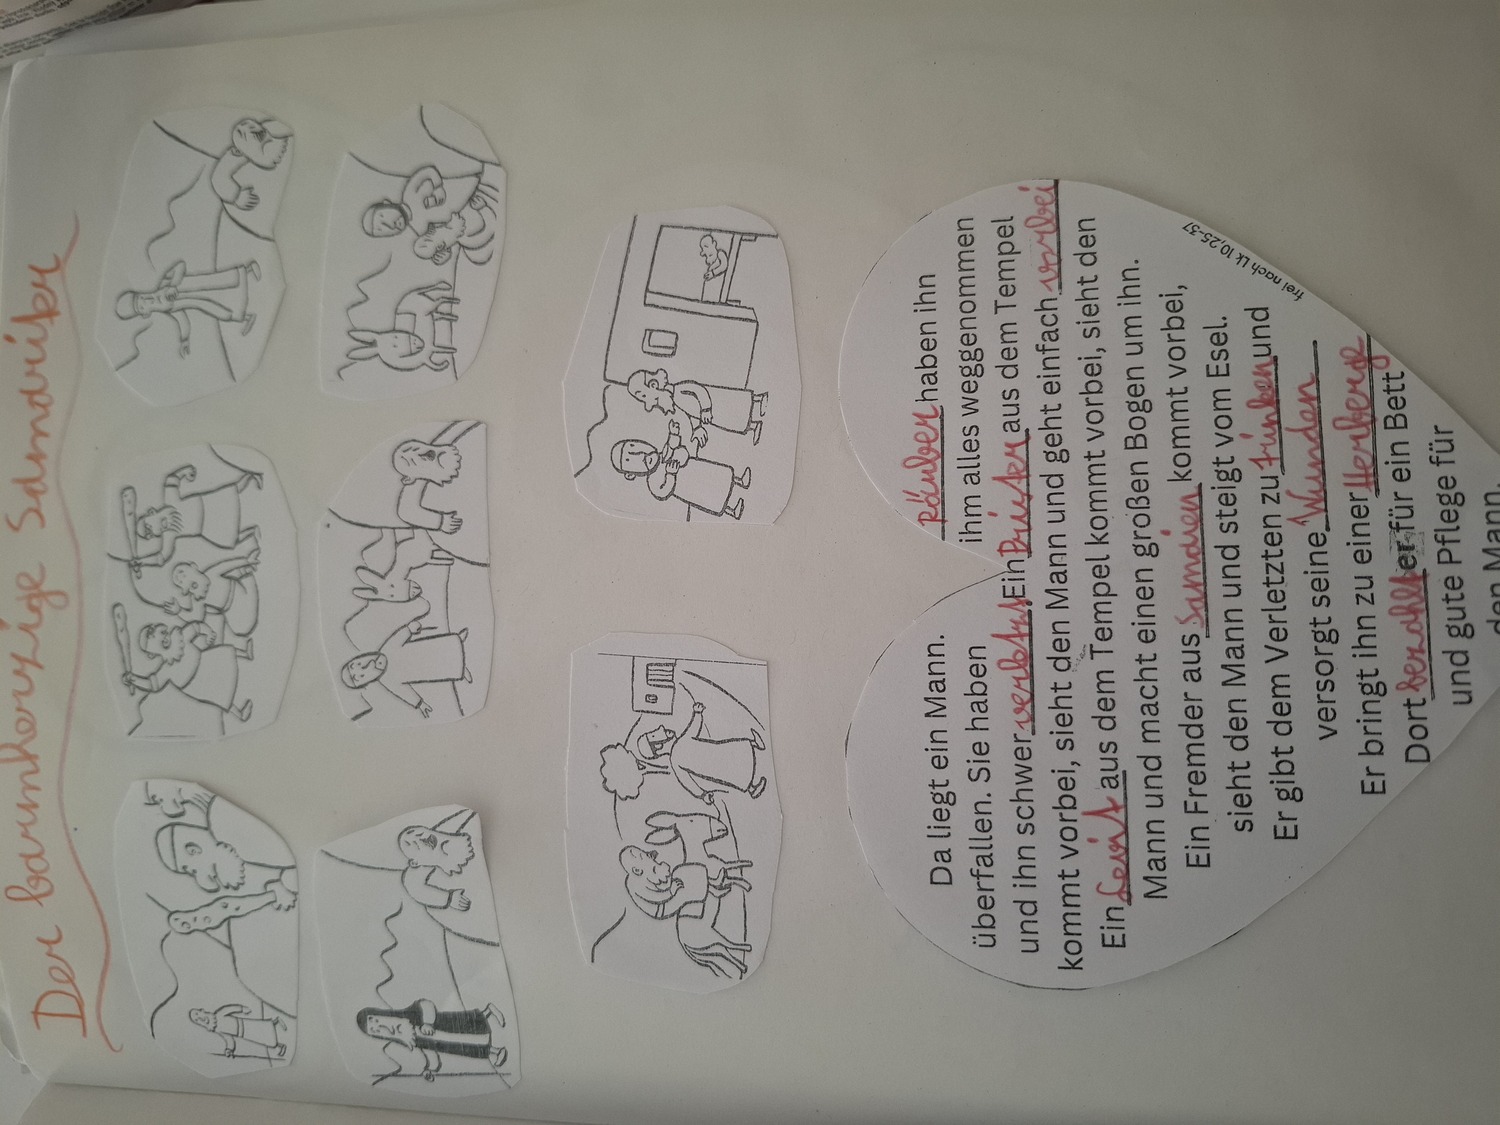 Der barmherzige Samariter
Da liegt ein Mann. Räuber haben ihn
überfallen. Sie haben ihm alles weggenommen
und ihn schwer verletzt. Ein Priester aus dem Tempel
kommt vorbei, sieht den Mann und geht einfach vorbei
Ein Levit aus dem Tempel kommt vorbei, sieht den
Mann und macht einen großen Bogen um ihn.
Ein Fremder aus Samarien kommt vorbei,
sieht den Mann und steigt vom Esel.
Er gibt dem Verletzten zu trinken und
versorgt seine Wunden
Er bringt ihn zu einer Herberge
Dort bezahlt er für ein Bett
und gute Pflege für
den Mann.
frei nach Lk 10,25-37